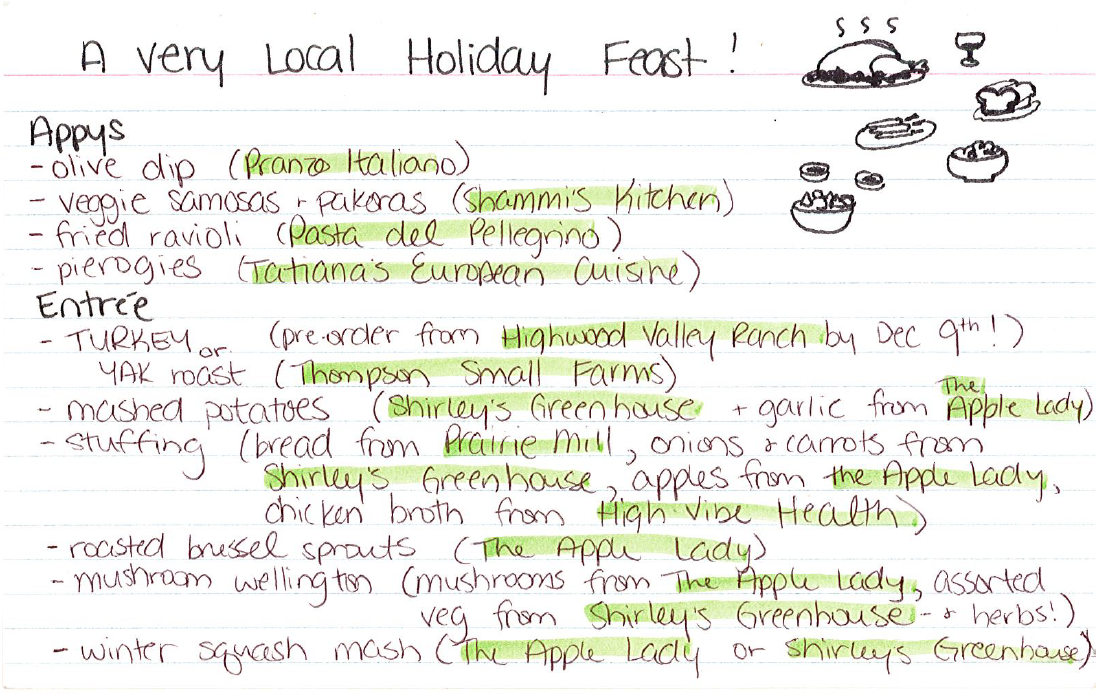 A very Local Holiday Feast!
Appys
- olive dip (Pranzo Italiano)
- veggie samosas + pakoras (Shammi's Kitchen)
- fried ravioli (Pasta del Pellegrino)
- pierogies (Tatiana's European Cuisine)
Entrée
- TURKEY or (pre-order from Highwood Valley Ranch by Dec 9th!)
YAK roast (Thompson Small Farms)
- mashed potatoes (Shirley's Greenhouse + garlic from The Apple Lady)
- stuffing (bread from Prairie Mill, onions + carrots from
Shirley's Greenhouse, apples from the Apple Lady,
chicken broth from High Vibe Health)
- roasted brussel sprouts (The Apple Lady)
- mushroom wellington (mushrooms from The Apple Lady, assorted
veg from Shirley's Greenhouse - + herbs!)
- winter squash mash (The Apple Lady or Shirley's Greenhouse)